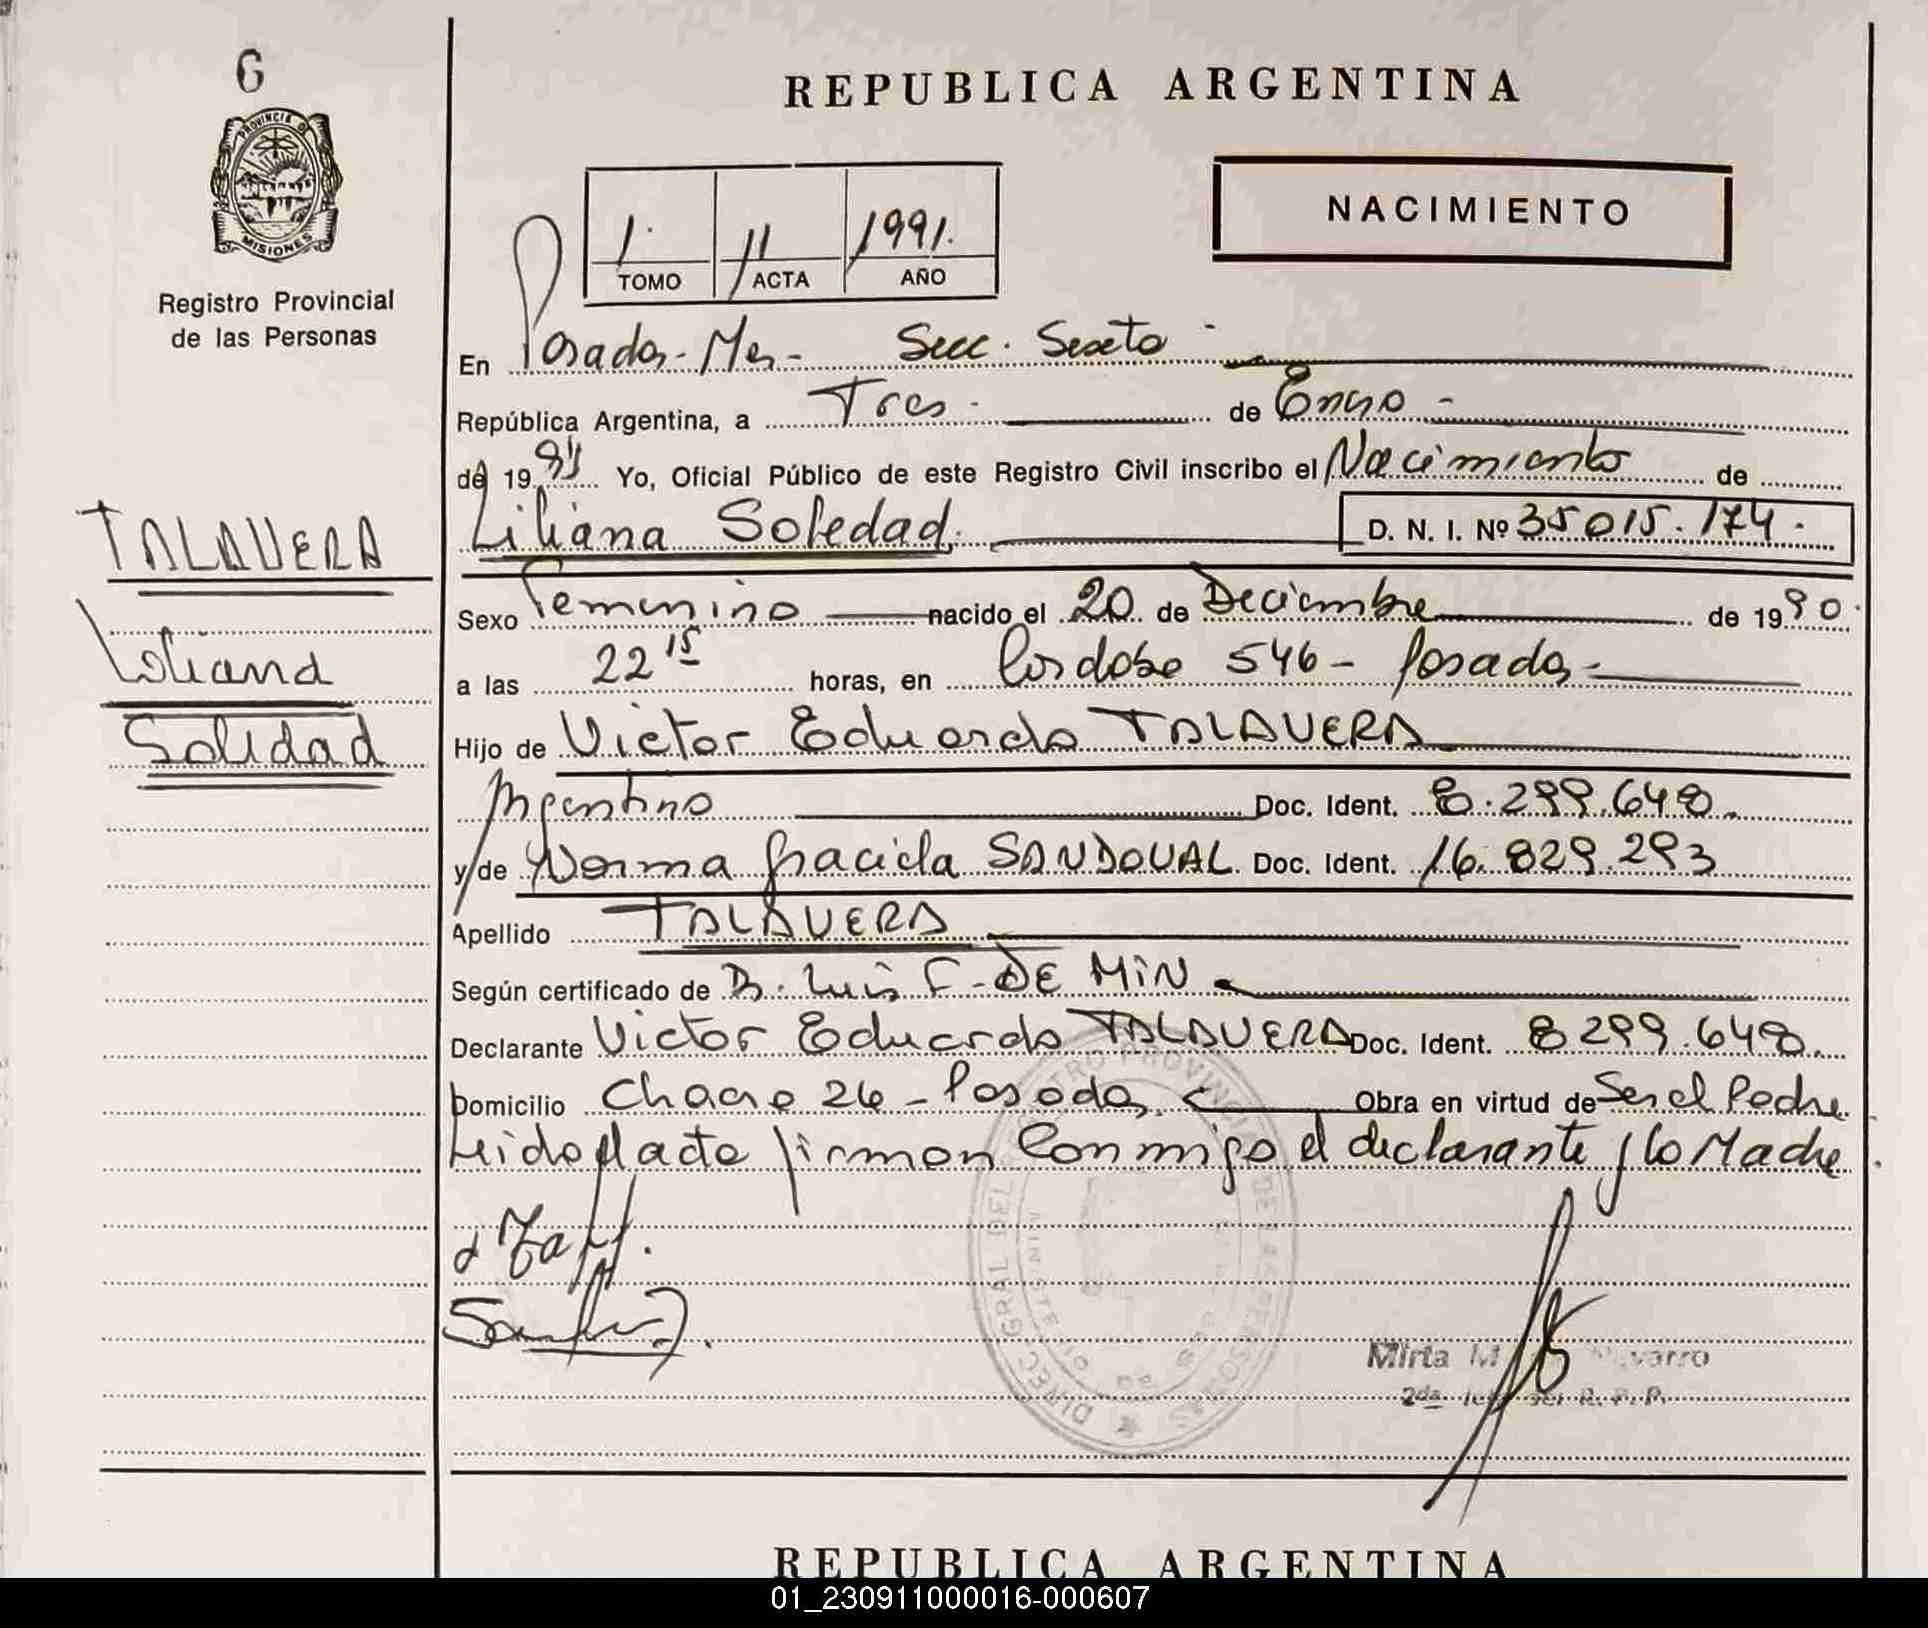 6
PROVINCIA DE
MISIONES
Registro Provincial
de las Personas
TALAVERA
Liliana
Soledad
REPUBLICA ARGENTINA
NACIMIENTO
1. 11 1991.
TOMO ACTA AÑO
En Posadas - Mes - Secc. Sexta -
República Argentina, a Tres - de Enero -
de 1991 Yo, Oficial Público de este Registro Civil inscribo el Nacimiento de
Liliana Soledad. D. N. I. Nº 35015.174.
Sexo Femenino nacido el 20 de Deciembre de 1990.
a las 22 15 horas, en Cordoba 546 - Posadas -
Hijo de Victor Eduardo TALAVERA
Argentino Doc. Ident. 8.299.648.
y de Norma Graciela SANDOVAL Doc. Ident. 16.829.293
Apellido TALAVERA
Según certificado de Luis F. DE MIN
Declarante Victor Eduardo TALAVERA Doc. Ident. 8299.648.
Domicilio Chacra 26 - Posadas. Obra en virtud de Ser el Padre
Leido el acta firman Conmigo el declarante y la Madre
DIREC. GRAL DEL REGISTRO PROVINCIAL DE LAS PERSONAS
Mirta M Navarro
2da R. P. P.
REPUBLICA ARGENTINA
01_230911000016-000607